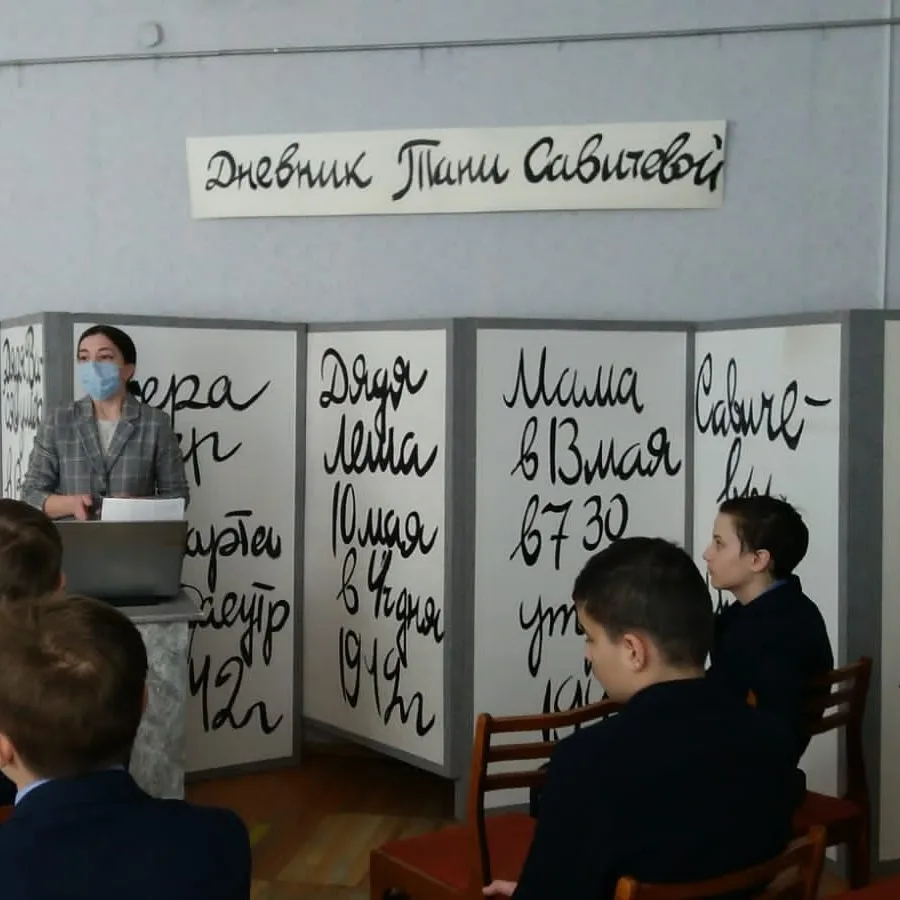 Дневник Тани Савичевой
Дядя Ва-
ер
арта
42г
Дядя
Леша
10 мая
в 4ч дня
1942г
Мама
в 13 мая
в 7 30
ут
19
Савиче-
вы